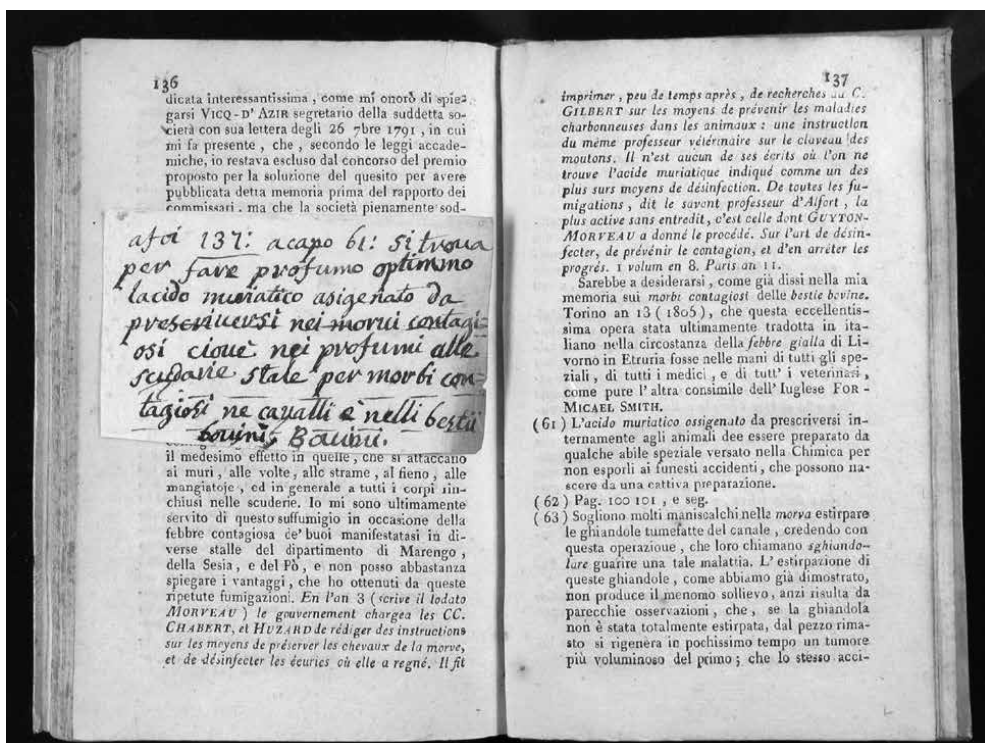 136
dicata interessantissima , come mi onorò di spie-
garsi VICQ-D' AZIR segretario della suddetta so-
cietà con sua lettera degli 26 7bre 1791 , in cui
mi fa presente , che , secondo le leggi accade-
miche, io restava escluso dal concorso del premio
proposto per la soluzione del quesito per avere
pubblicata detta memoria prima del rapporto dei
commissari , ma che la società pienamente sod-
a foi 137: a capo 61: si troua
per fare profumo optimmo
lacido muriatico asigenato da
prescriuersi nei morui contagi=
osi cioue nei profumi alle
scudarie state per morbi con-
tagiosi ne caualli è nelli bestii
bouini, Bouini.
il medesimo effetto in quelle , che si attaccano
ai muri , alle volte , allo strame , al fieno , alle
mangiatoje , ed in generale a tutti i corpi rin-
chiusi nelle scuderie. Io mi sono ultimamente
servito di questo suffumigio in occasione della
febbre contagiosa de' buoi manifestatasi in di-
verse stalle del dipartimento di Marengo ,
della Sesia , e del Pò , e non posso abbastanza
spiegare i vantaggi , che ho ottenuti da queste
ripetute fumigazioni. En l'an 3 ( scrive il lodato
MORVEAU ) le gouvernement chargea les CC.
CHABERT, et HUZARD de rédiger des instructions
sur les moyens de préserver les chevaux de la morve,
et de désinfecter les écuries où elle a regné. Il fit
137
imprimer , peu de temps après , de recherches du C.
GILBERT sur les moyens de prévenir les maladies
charbonneuses dans les animaux : une instruction
du même professeur vétérinaire sur le claveau des
moutons. Il n'est aucun de ses écrits où l'on ne
trouve l'acide muriatique indiqué comme un des
plus surs moyens de désinfection. De toutes les fu-
migations , dit le savant professeur d'Alfort , la
plus active sans entredit, c'est celle dont GUYTON-
MORVEAU a donné le procédé. Sur l'art de désin-
fecter, de prévénir le contagion, et d'en arrêter les
progrés. 1 volum en 8. Paris an 11.
Sarebbe a desiderarsi , come già dissi nella mia
memoria sui morbi contagiosi delle bestie bovine.
Torino an 13 ( 1805 ), che questa eccellentis-
sima opera stata ultimamente tradotta in ita-
liano nella circostanza della febbre gialla di Li-
vorno in Etruria fosse nelle mani di tutti gli spe-
ziali , di tutti i medici , e di tutt' i veterinari ,
come pure l' altra consimile dell' Iuglese FOR-
MICAEL SMITH.
( 61 ) L'acido muriatico ossigenato da prescriversi in-
ternamente agli animali dee essere preparato da
qualche abile speziale versato nella Chimica per
non esporli ai funesti accidenti , che possono na-
scere da una cattiva preparazione.
( 62 ) Pag. 100 101 , e seg.
( 63 ) Sogliono molti maniscalchi nella morva estirpare
le ghiandole tumefatte del canale , credendo con
questa operazioue , che loro chiamano sghiando-
lare guarire una tale malattia. L' estirpazione di
queste ghiandole , come abbiamo già dimostrato,
non produce il menomo sollievo, anzi risulta da
parecchie osservazioni , che , se la ghiandola
non è stata totalmente estirpata, dal pezzo rima-
sto si rigenera in pochissimo tempo un tumore
più voluminoso del primo ; che lo stesso acci-